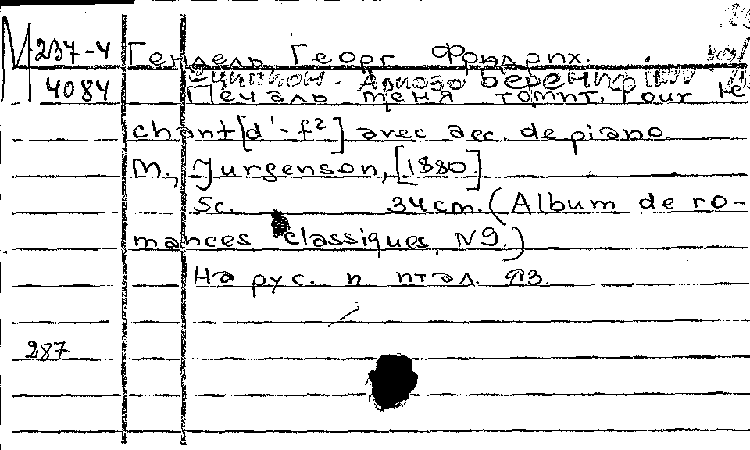 М 237-4 Гендель, Георг Фридрих.
4084 Сципион. Ариозо Береники
Печаль меня томит. Pour le
chant [d¹-f²] avec acc. de piano
M., Jurgenson, [1880]
5c. 34cm. (Album de ro-
mances classiques, N9.)
На рус. и итал. яз.
287